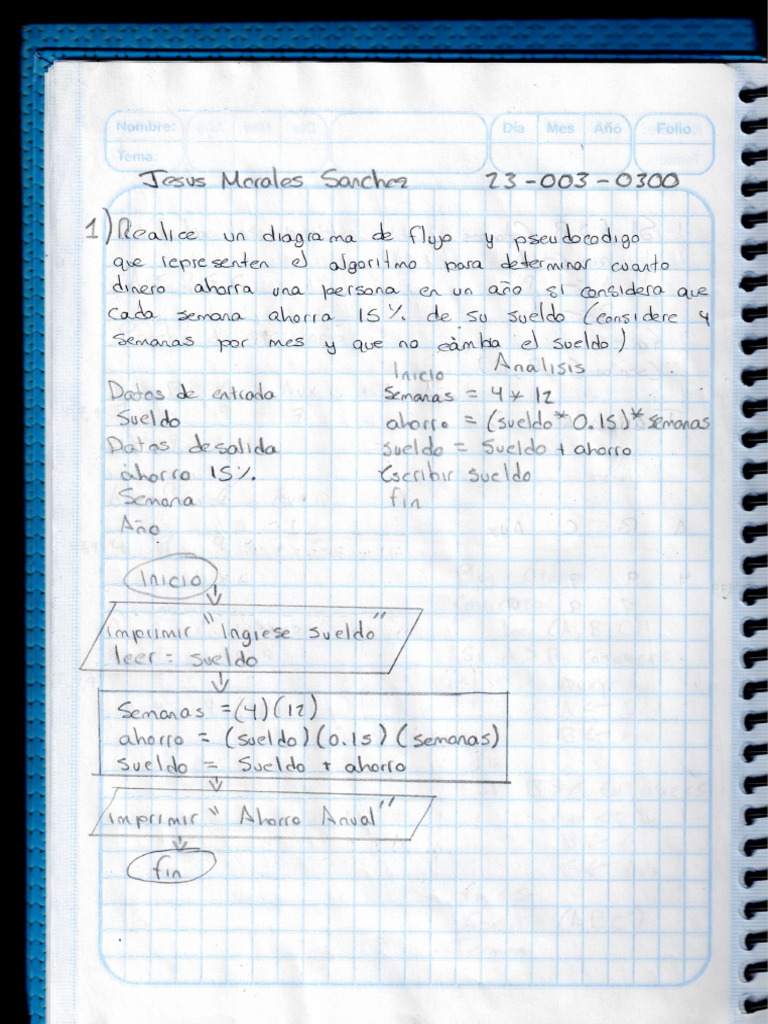 Nombre: Día Mes Año Folio
Tema:
Jesus Morales Sanchez 23-003-0300
1) Realice un diagrama de flujo y pseudocodigo
que representen el algoritmo para determinar cuanto
dinero ahorra una persona en un año si considera que
cada semana ahorra 15% de su sueldo (considere 4
semanas por mes y que no cambia el sueldo)
Inicio Analisis
Datos de entrada semanas = 4 * 12
Sueldo ahorro = (sueldo*0.15)*semanas
Datos de salida sueldo = Sueldo + ahorro
ahorro 15% Escribir sueldo
Semana fin
Año
Inicio
imprimir "Ingrese sueldo"
leer = sueldo
Semanas =(4)(12)
ahorro = (sueldo)(0.15)(semanas)
sueldo = Sueldo + ahorro
imprimir " Ahorro Anual"
fin